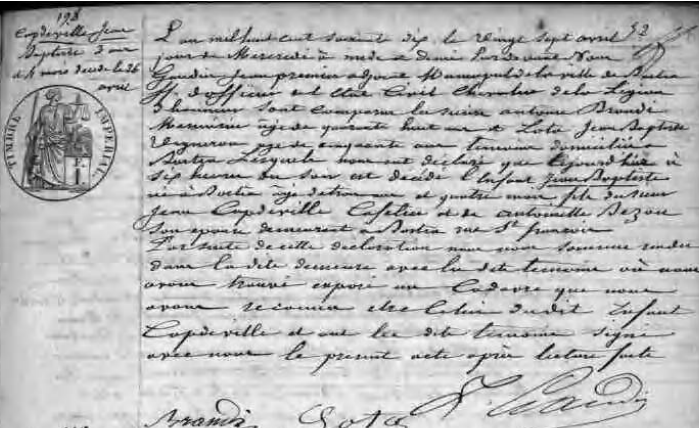 198
Capdeville Jean
Baptiste 3 ans
et 4 mois décédé le 26
avril
TIMBRE IMPERIAL
L'an mil huit cent soixante dix le vingt sept avril
jour de Mercredi à midi et demi Pardevant Nous
Gaudin Jean premier adjoint Municipal de la ville de Bastia
ff d'officier de l'Etat Civil Chevalier de la Légion
d'honneur sont comparus les sieurs antoine Brandi
Menuisier âgé de quarante huit ans et Lota Jean Baptiste
Vigneron âgé de cinquante ans témoins domiciliés à
Bastia Lesquels nous ont déclaré que
six heures du soir est décédé l'Enfant Jean Baptiste
né à Bastia âgé de trois ans et quatre mois fils du sieur
Jean Capdeville et de Antoinette
son épouse demeurant à Bastia rue St françois
Par suite de cette déclaration nous nous sommes rendu
dans la dite demeure avec les dits témoins où nous
avons trouvé exposé un Cadavre que nous
avons reconnu être Celui dudit Enfant
Capdeville et ont les dits témoins signé
avec nous le présent acte après lecture faite
Brandi Lota